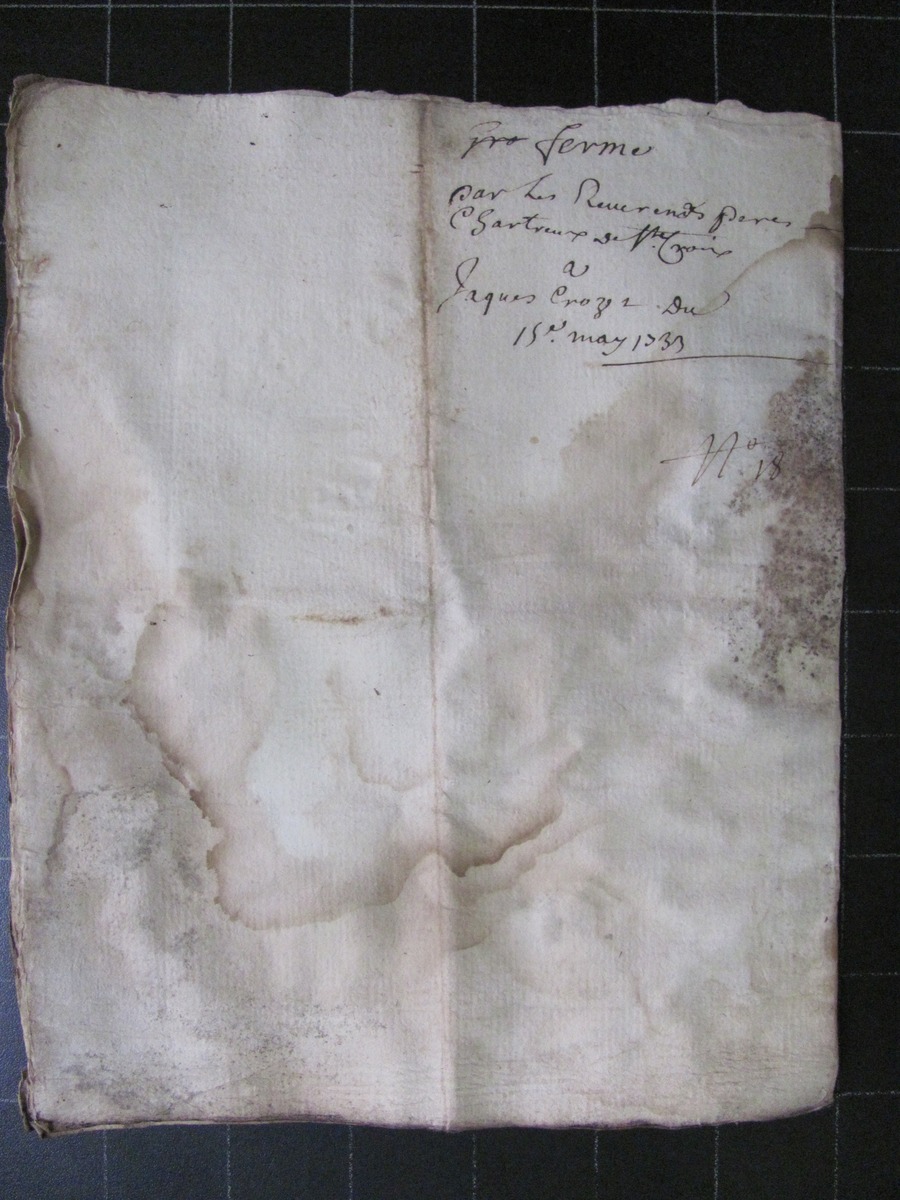 pro ferme
par Les Reuerends peres
Chartreux de Ste. Croix
a
Jaques Crozet Du
15e. may 1733
No 18